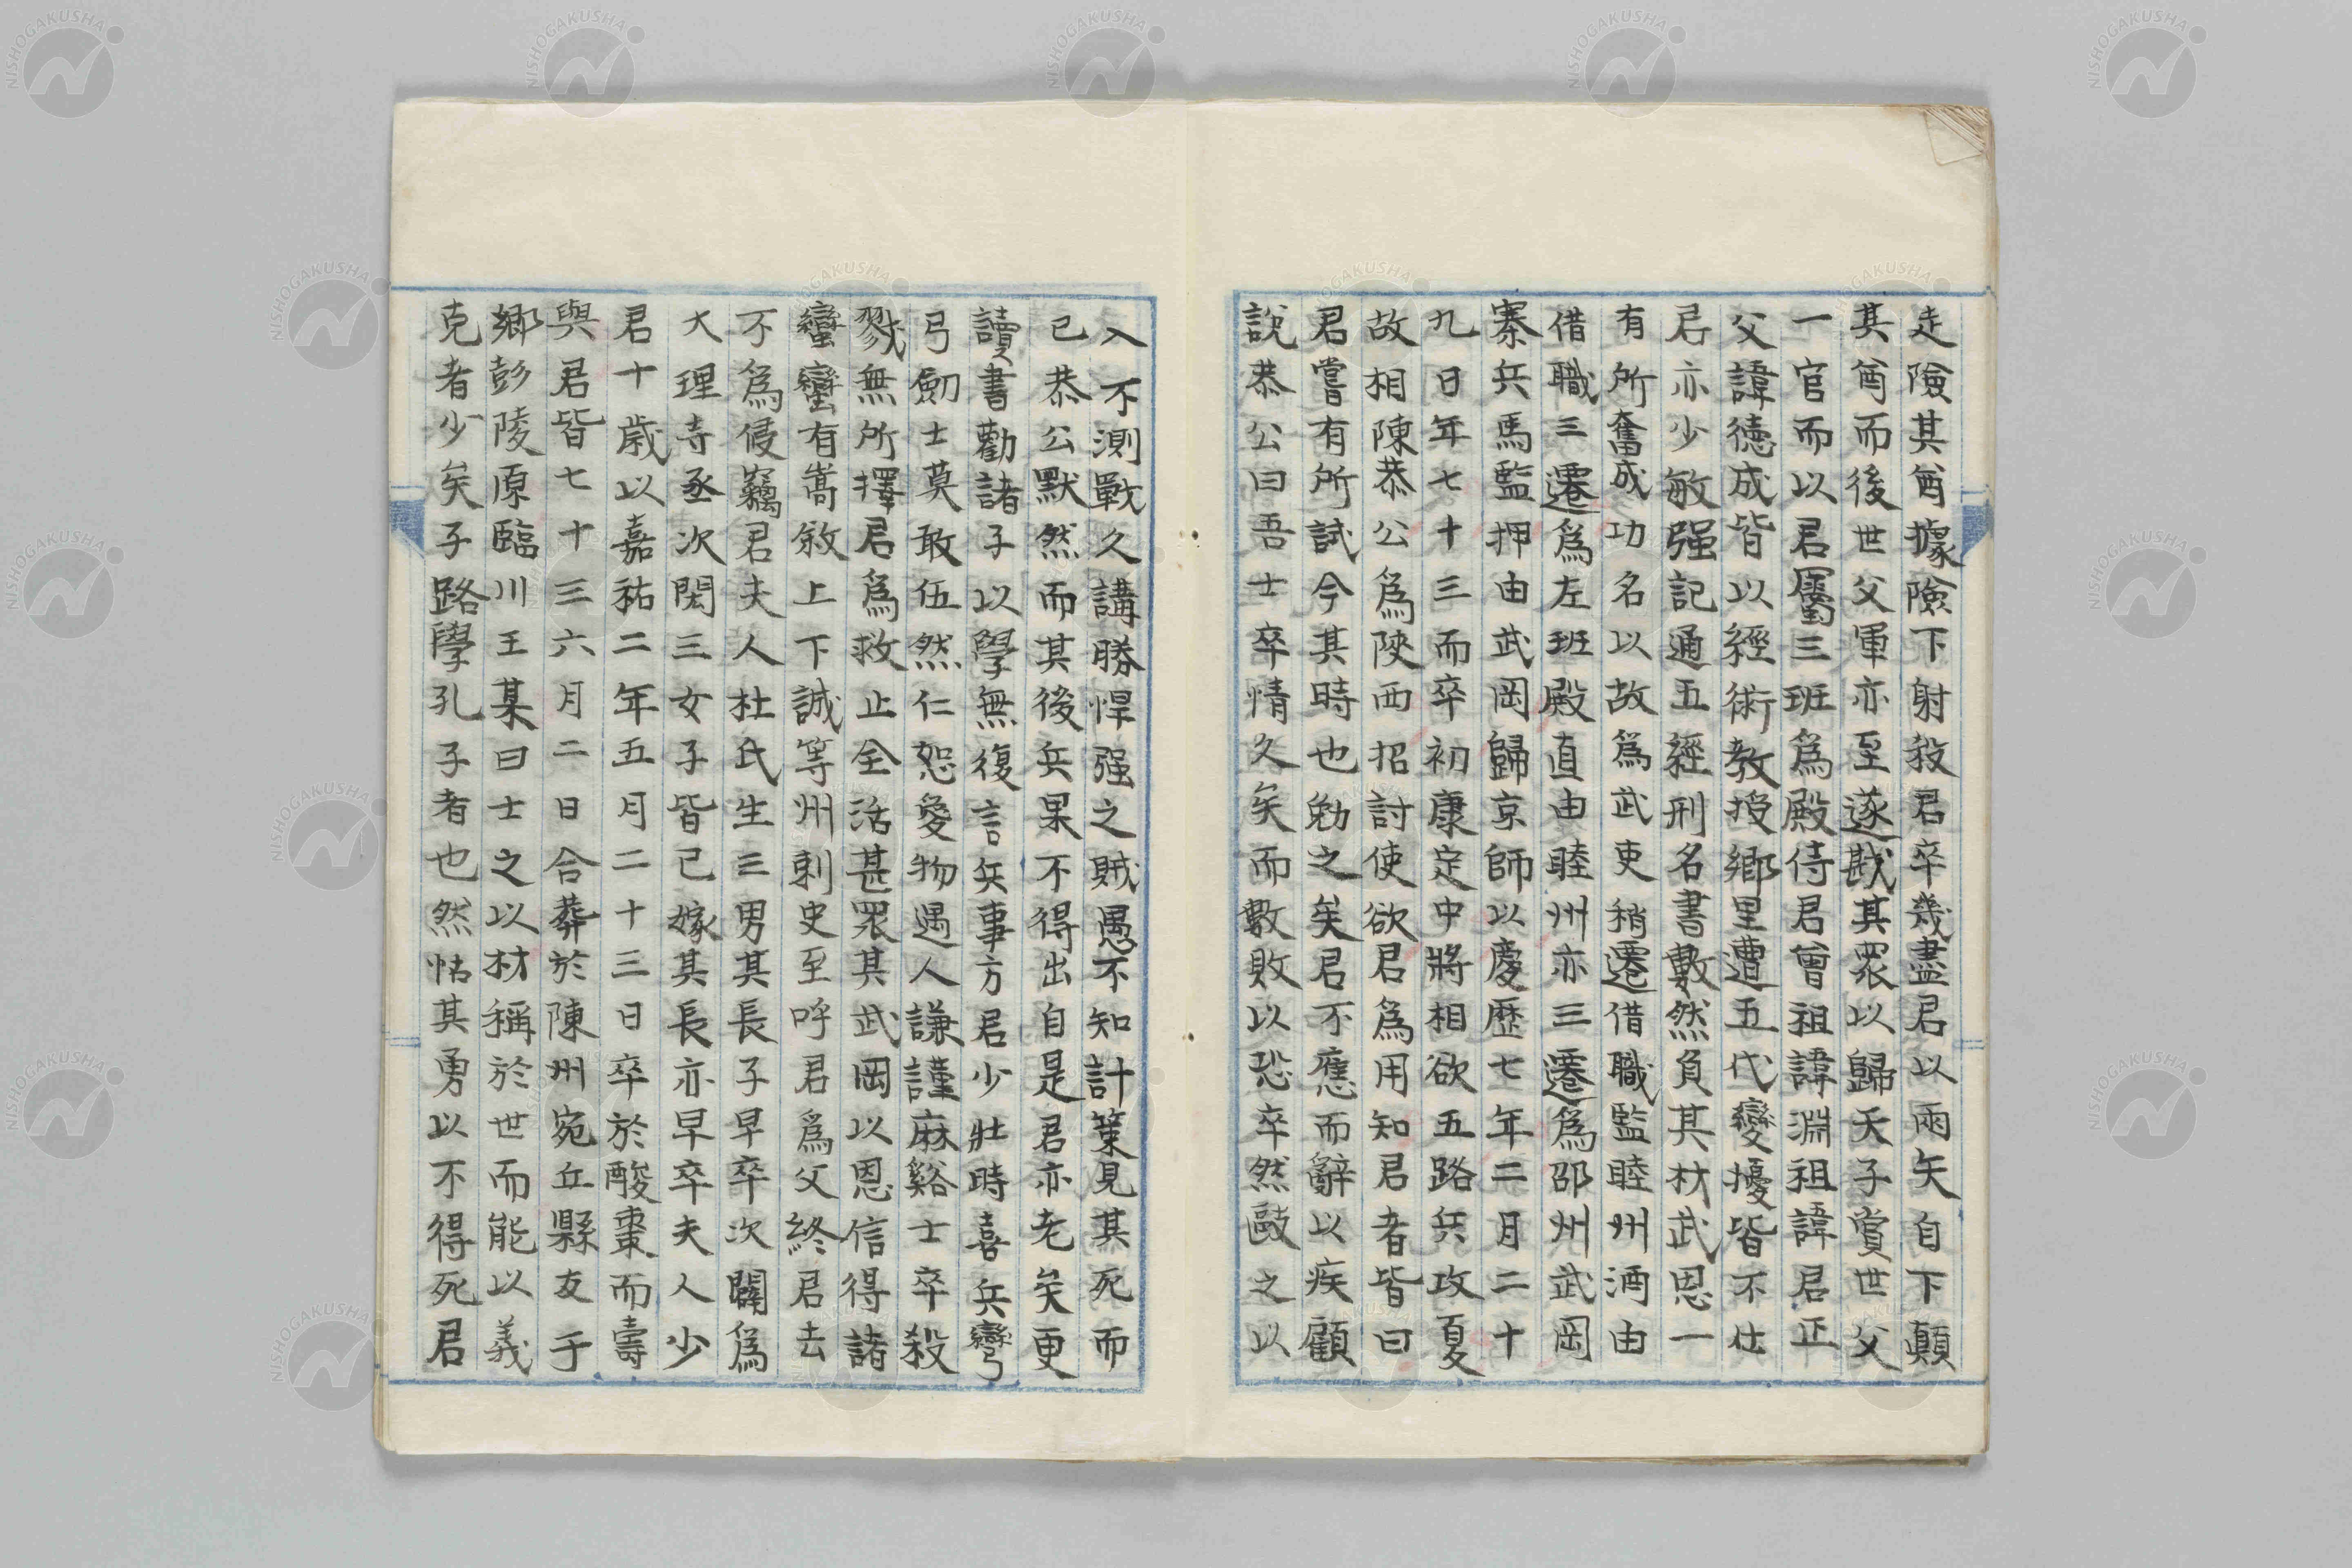 走險其酋據險下射殺君卒幾盡君以兩矢自下顛
其酋而後世父軍亦至遂戡其眾以歸天子賞世父
一官而以君屬三班爲殿侍君曾祖諱淵祖諱君正
父諱德成皆以經術敎授鄉里遭五代變擾皆不仕
君亦少敏强記通五經刑名書數然負其材武思一
有所奮成功名以故爲武吏稍遷借職監睦州酒由
借職三遷爲左班殿直由睦州亦三遷爲邵州武岡
寨兵馬監押由武岡歸京師以慶歷七年二月二十
九日年七十三而卒初康定中將相欲五路兵攻夏
故相陳恭公爲陝西招討使欲君爲用知君者皆曰
君嘗有所試今其時也勉之矣君不應而辭以疾顧
說恭公曰吾士卒情久矣而數敗以恐卒然敺之以
入不測戰久講勝悍强之賊愚不知計策見其死而
已恭公默然而其後兵果不得出自是君亦老矣更
讀書勸諸子以學無復言兵事方君少壯時喜兵彎
弓劒士莫敢伍然仁恕愛物遇人謙謹麻谿士卒殺
戮無所擇君爲救止全活甚眾其武岡以恩信得諸
蠻蠻有嵩敘上下誠等州刺史至呼君爲父終君去
不爲侵竊君夫人杜氏生三男其長子早卒次闢爲
大理寺丞次閎三女子皆已嫁其長亦早卒夫人少
君十歲以嘉祐二年五月二十三日卒於酸棗而壽
與君皆七十三六月二日合葬於陳州宛丘縣友于
鄉彭陵原臨川王某曰士之以材稱於世而能以義
克者少矣子路學孔子者也然怙其勇以不得死君